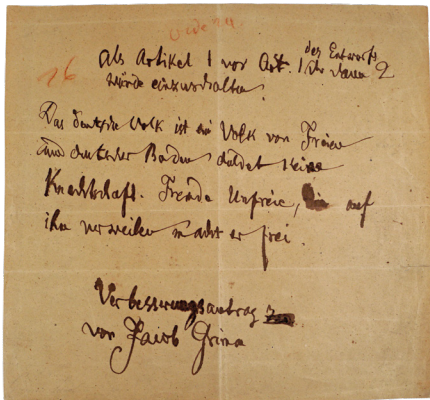 als Artikel 1 vor Art. 1 des Entwurfs
der dann 2
würde einzuschalten:
Das deutsche Volk ist ein Volk von Freien
und deutscher Boden duldet keine
Knechtschaft. Fremde Unfreie, die auf
ihm verweilen macht er frei.
Verbesserungsantrag
von Jacob Grimm